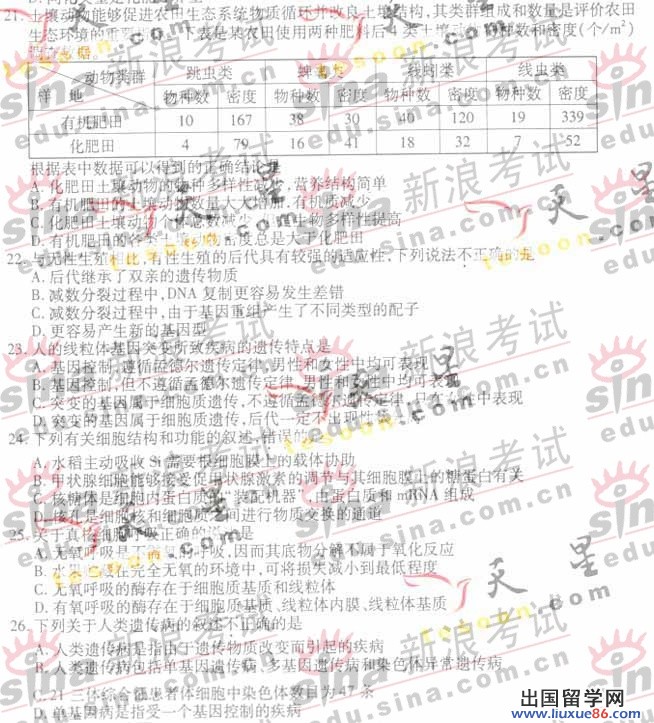 21. 土壤动物能够促进农田生态系统物质循环并改良土壤结构,其类群组成和数量是评价农田
生态环境的重要 下表是某农田使用两种肥料后4类土壤动物物种数和密度(个/m²)
调查数据。
动物类群 跳虫类 蜱螨类 线蚓类 线虫类
样 地 物种数 密度 物种数 密度 物种数 密度 物种数 密度
有机肥田 10 167 38 30 40 120 19 339
化肥田 4 79 16 41 18 32 7 52
根据表中数据可以得到的正确结论是
A. 化肥田土壤动物的物种多样性减少,营养结构简单
B. 有机肥田的土壤动物数量大大增加,有机质减少
C. 化肥田土壤动物个体总数减少, 动物多样性提高
D. 有机肥田的各类土壤动物密度总是大于化肥田
22. 与无性生殖相比,有性生殖的后代具有较强的适应性,下列说法不正确的是
A. 后代继承了双亲的遗传物质
B. 减数分裂过程中,DNA 复制更容易发生差错
C. 减数分裂过程中,由于基因重组产生了不同类型的配子
D. 更容易产生新的基因型
23. 人的线粒体基因突变所致疾病的遗传特点是
A. 基因控制,遵循孟德尔遗传定律,男性和女性中均可表现
B. 基因控制,但不遵循孟德尔遗传定律,男性和女性中均可表现
C. 突变的基因属于细胞质遗传,不遵循孟德尔遗传定律,只在女性中表现
D. 突变的基因属于细胞质遗传,后代一定不出现性
24. 下列有关细胞结构和功能的叙述,错误的是
A. 水稻主动吸收 Si 需要根细胞膜上的载体协助
B. 甲状腺细胞能够接受促甲状腺激素的调节与其细胞膜上的糖蛋白有关
C. 核糖体是细胞内蛋白质的“装配机器”,由蛋白质和 mRNA 组成
D. 核孔是细胞核和细胞质之间进行物质交换的通道
25. 关于真核细胞呼吸正确的 是
A. 无氧呼吸是不需氧的呼吸,因而其底物分解不属于氧化反应
B. 水果贮藏在完全无氧的环境中,可将损失减小到最低程度
C. 无氧呼吸的酶存在于细胞质基质和线粒体
D. 有氧呼吸的酶存在于细胞质基质、线粒体内膜、线粒体基质
26. 下列关于人类遗传病的叙述不正确的是
A. 人类遗传病是指由于遗传物质改变而引起的疾病
B. 人类遗传病包括单基因遗传病、多基因遗传病和染色体异常遗传病
C. 21 三体综合征患者体细胞中染色体数目为 47 条
D. 单基因病是指受一个基因控制的疾病
sina 新浪考试
edu.sina.com.cn
天星
tesoon.com
出国留学网
www.liuxue86.com